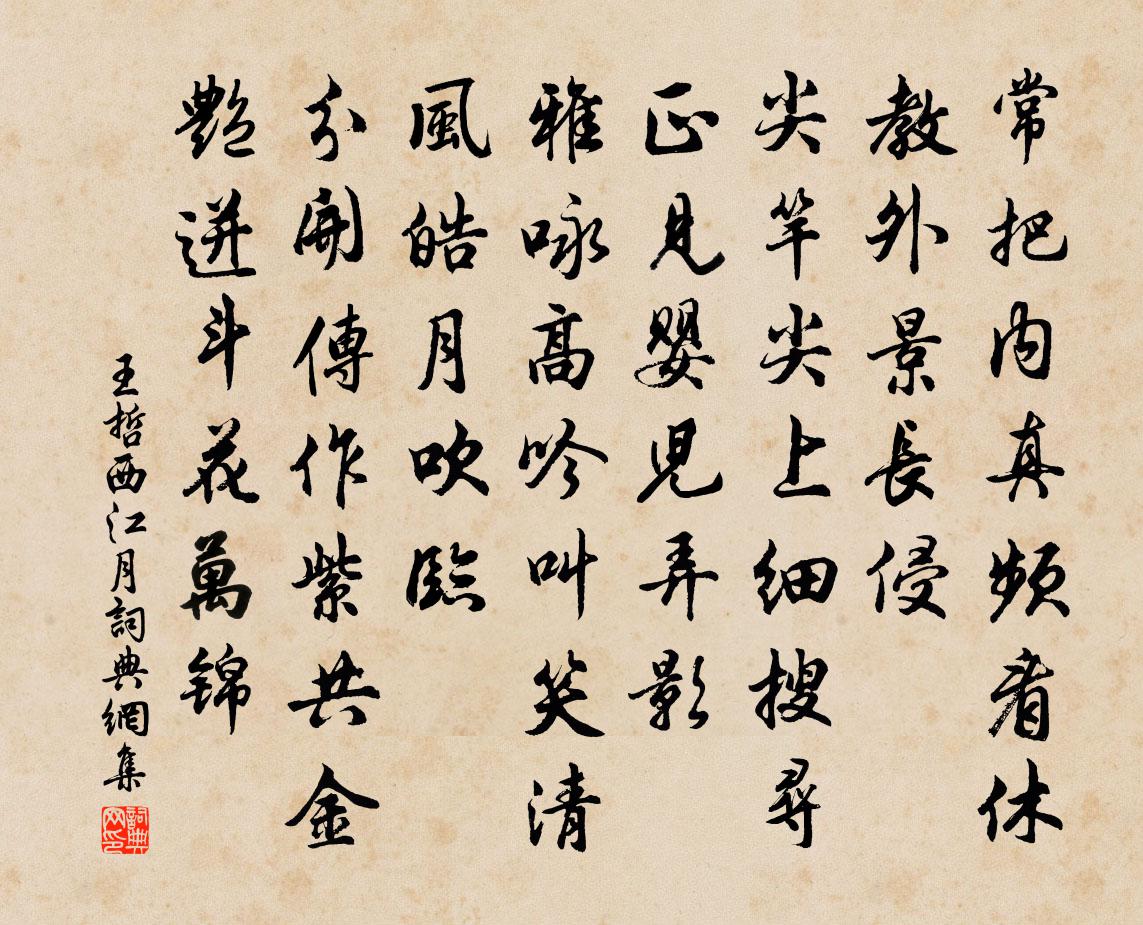 常把内真頻看休
教外景長侵
尖竿尖上細搜尋
正見嬰兒弄影
雅咏高吟叫笑清
風皓月吹臨
分開傳作紫共金
艷迸斗花萬錦
王哲西江月詞典網集
詞典网印